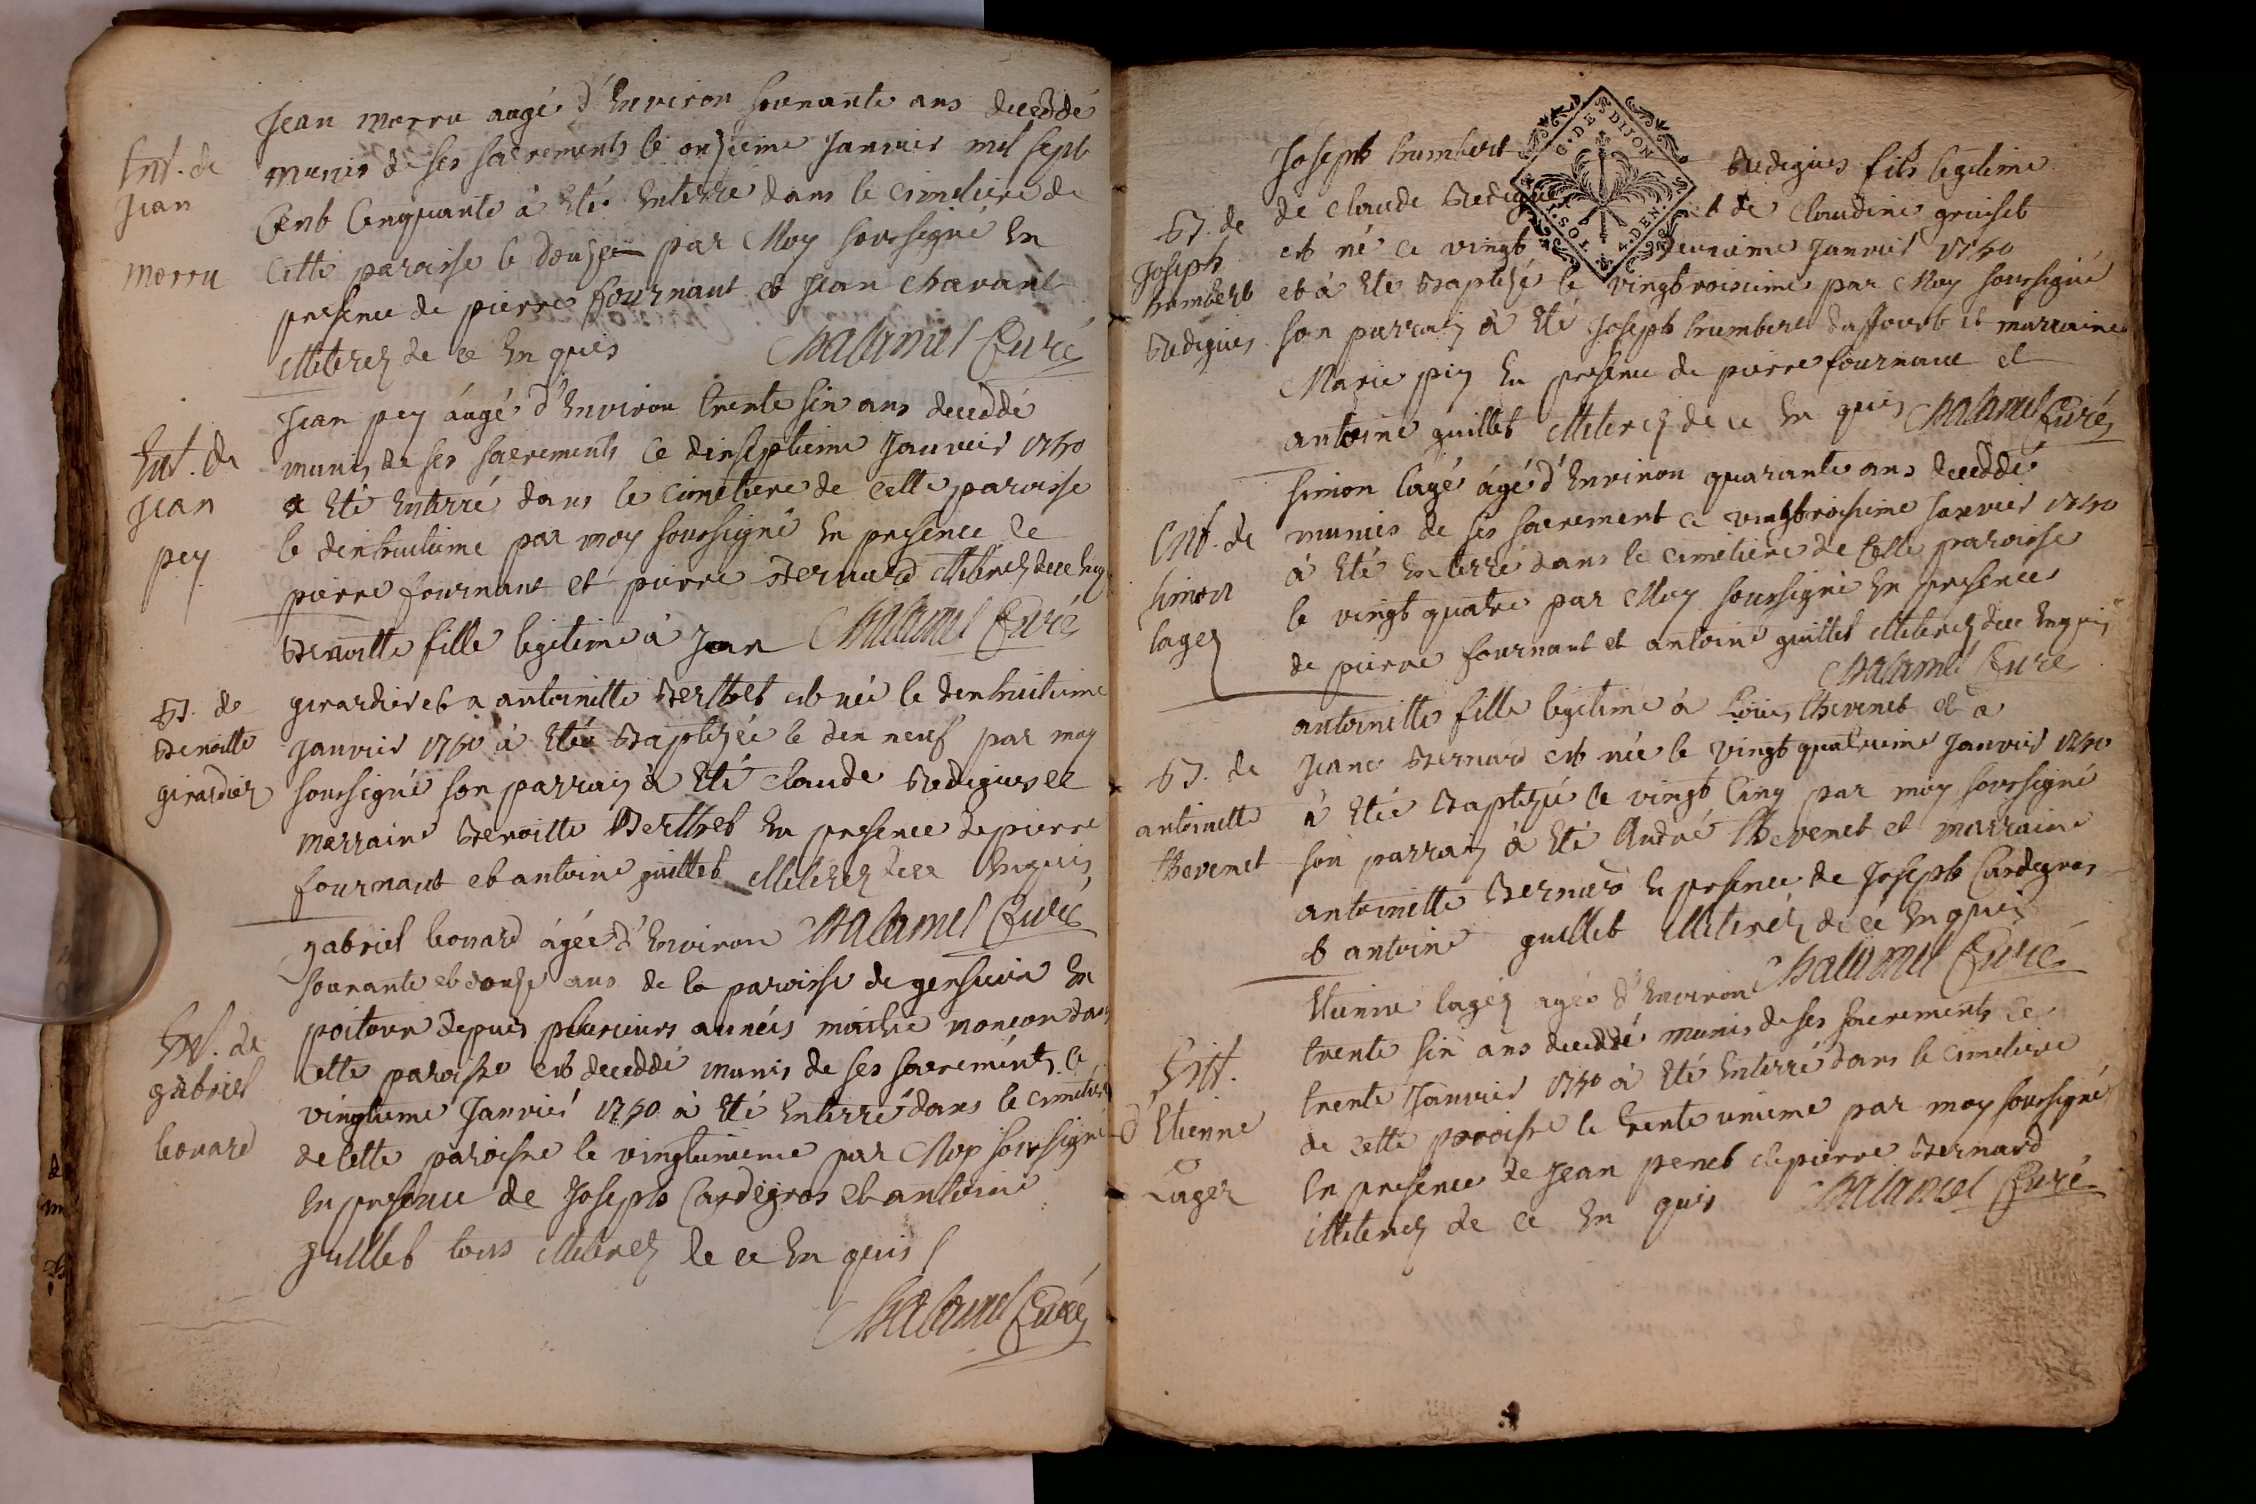 Jean merru augé d'Environ soixante ans deceddé
Ent. de
Jean
merru
munis de ses sacrements le onzieme Janvier mil sept
Cent Cinquante à Eté Enterre dans le cimetiere de
Cette paroisse le douze par Moy soussigné En
presence de pierre fournant et Jean chavant
illiterez de ce En quis Chalamel Curé
Jean pey áugé d'Environ trente six ans deceddé
Ent. de
Jean
pey
munis de ses sacrements le dixseptieme Janvier 1750
a Eté Enterré dans le cimetiere de cette paroisse
le dixhuitieme par moy soussigné En presence de
pierre fournant et pierre Bernard illiterez de ce Enq
Benoitte fille legitime à Jean Chalamel Curé
B. de
Benoitte
girardier
girardier et a antoinette Berthet est née le dixhuitieme
Janvier 1750 à Etée Baptizée le dix neuf par moy
soussigné son parrain à Eté claude Bedigues et
marraine Benoitte Berthet En presence de pierre
fournant et antoine guillet illiterez de ce Enquis
gabriel leonard ágée d'Environ Chalamel Curé
Ent. de
gabriel
leonard
soixante et douze ans de la paroisse de gensieux En
poitoux depuis plusieurs années maitre masson dans
cette paroisse est deceddé munis de ses sacreménts le
vingtieme Janvier 1750 à Eté Enterré dans le cimetiere
de Cette paroisse le vingtunieme par Moy soussigné
En presence de Joseph Cardegros et antoine
guillet tous illiterez de ce En quis
Chalamel Curé
G. DE DIJON
1. SOL 4. DEN
Joseph humbert Bedigues fils legitime
B. de
Joseph
humbert
Bedigues
de claude Bedigues et de claudine gruiset
est né le vingt deuxieme Janvier 1750
et à Eté Baptizé le vingtroisieme par Moy soussigné
son parrain à Eté Joseph humbert et marraine
Marie pey En presence de pierre fournant et
antoine guillet illiterez de ce En quis Chalamel Curé
simon lagé ágé d'Environ quarante ans deceddé
Ent. de
simon
lagez
munis de ses sacrement le vingtroisieme Janvier 1750
à Eté Enterré dans le cimetiere de Cette paroisse
le vingt quatre par Moy soussigné En presence
de pierre fournant et antoine guillet illiterez de ce Enquis
Chalamel Curé
antoinette fille legitime à Louis thevenet et a
B. de
antoinette
thevenet
Jeane Bernard est née le vingt quatrieme Janvier 1750
à Etée Baptizée le vingt Cinq par moy soussigné
son parrain à Eté André thevenet et marraine
antoinette Bernard En presence de Joseph Cardegros
et antoine guillet illiterez de ce En quis
Chalamel Curé
Etienne lagéz agée d'Environ
Ent.
d'Etienne
Lagez
trente six ans deceddé munis de ses sacrements le
trente Janvier 1750 à Eté Enterré dans le cimetiere
de cette paroisse le trente unieme par moy soussigné
En presence de Jean penet et pierre Bernard
illiterez de ce En quis Chalamel Curé